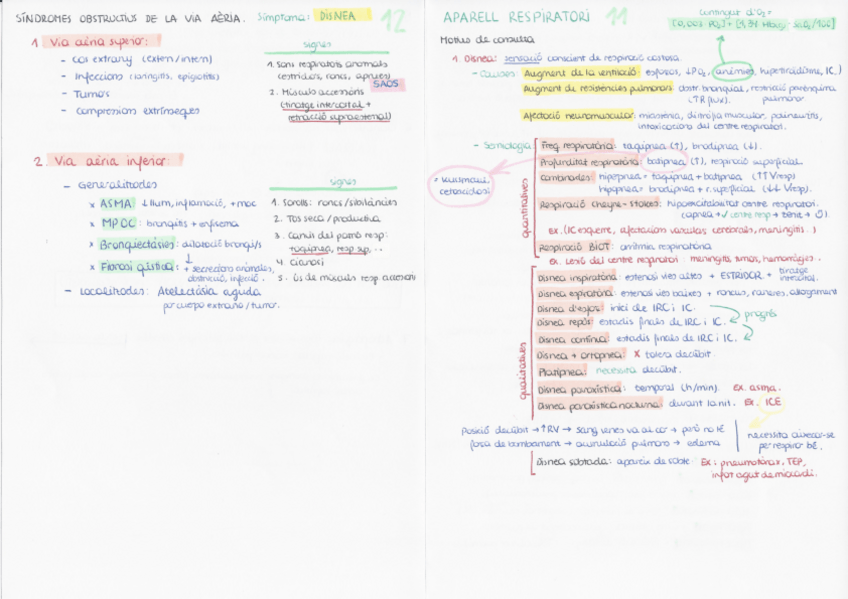 SÍNDROMES OBSTRUCTIUS DE LA VIA AÈRIA. Símptoma: DISNEA 12
1. Via aèria superior:
- Cos extrany (exten/inten)
- Infeccions (laringitis, epiglotitis)
- Tumors
- Compressions extrínseques
signes
1. Sons respiratoris anormals
(estridors, roncs, apnees)
SAOS
2. Músculs accessoris
(tiratge intercostal +
retracció supraesternal)
2. Via aèria inferior:
- Generalitzades
x ASMA ↓ llum, inflamació, + moc
x MPOC: bronquitis + enfisema
x Bronquièctasis: dilatació bronquis
↓
x Fibrosi quística: + secrecions anòmales,
obstrucció, infecció.
- Localitzades: Atelectàsia aguda
per cuerpo extraño/tumor.
signes
1. Sorolls: roncs/sibilàncies
2. Tos seca / productiva
3. Canvis del patró resp:
taquipnea, resp sup, ..
4. Cianosi
5. Ús de músculs resp. accessoris
APARELL RESPIRATORI 11
Contingut d'O₂ =
[0,003 · PO₂] + [1,34 · Hb · SaO₂/100]
Motius de consulta
1. Disnea: sensació conscient de respiració costosa.
- Causes: Augment de la ventilació: esforços, ↓PO₂, anèmies, hipertiroïdisme, IC.)
Augment de resistències pulmonars: obstr. bronquial, restricció parènquima
(↑R flux). pulmonar
Afectació neuromuscular: miastènia, distròfia muscular, polineuritis,
intoxicacions del centre respiratori.
- Semiologia
quantitatives
Freq. respiratòria: taquipnea (↑), bradipnea (↓).
Profunditat respiratòria: batipnea (↑), respiració superficial.
= Kussmaul,
cetoacidosi
Combinades: hiperpnea = taquipnea + batipnea (↑↑ Vresp)
hipopnea = bradipnea + r. superficial (↓↓ Vresp).
Respiració Cheyne-Stokes: hipoexcitabilitat centre respiratori.
ex. (IC esquerre, afectacion vasculars cerebrals, meningitis..)
Respiració BIOT: arítmia respiratòria
ex. Lesió del centre respiratori: meningitis, tumors, hemorràgies..
qualitatives
Disnea inspiratòria: estenosi vies altes + ESTRIDOR + tiratge
intercostal.
Disnea espiratòria: estenosi vies baixes + roncus, raneres, allargament
Disnea d'esforç: inici de IRC i IC.
progrés
Disnea repòs: estadis finals de IRC i IC.
Disnea contínua: estadis finals de IRC i IC.
Disnea + ortopnea: x tolera decúbit.
Platipnea: necessita decúbit.
Disnea paroxística: temporal (h/min). ex. asma.
Disnea paroxística nocturna: durant la nit. Ex. ICE
Posició decúbit → ↑RV → sang venes va al cor → però no té
força de bombament → acumulació pulmons → edema
necessita aixecar-se
per respirar bé.
Disnea sobtada: apareix de sobte. Ex: pneumotòrax, TEP,
infart agut de miocardi.